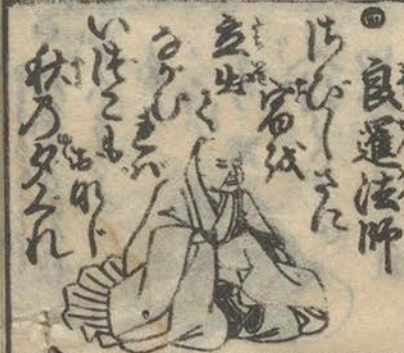 四
良暹法師
さびしさに
宿越
立出て
ながむれバ
いづこも おなじ
秋乃夕ぐれ